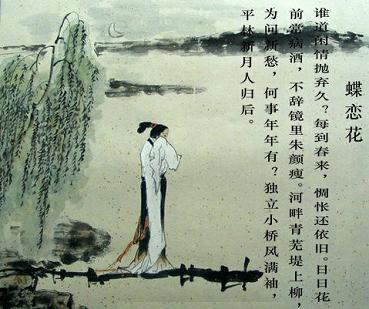 蝶恋花
谁道闲情抛弃久？每到春来，惆怅还依旧。日日花
前常病酒，不辞镜里朱颜瘦。河畔青芜堤上柳，
为问新愁，何事年年有？独立小桥风满袖，
平林新月人归后。